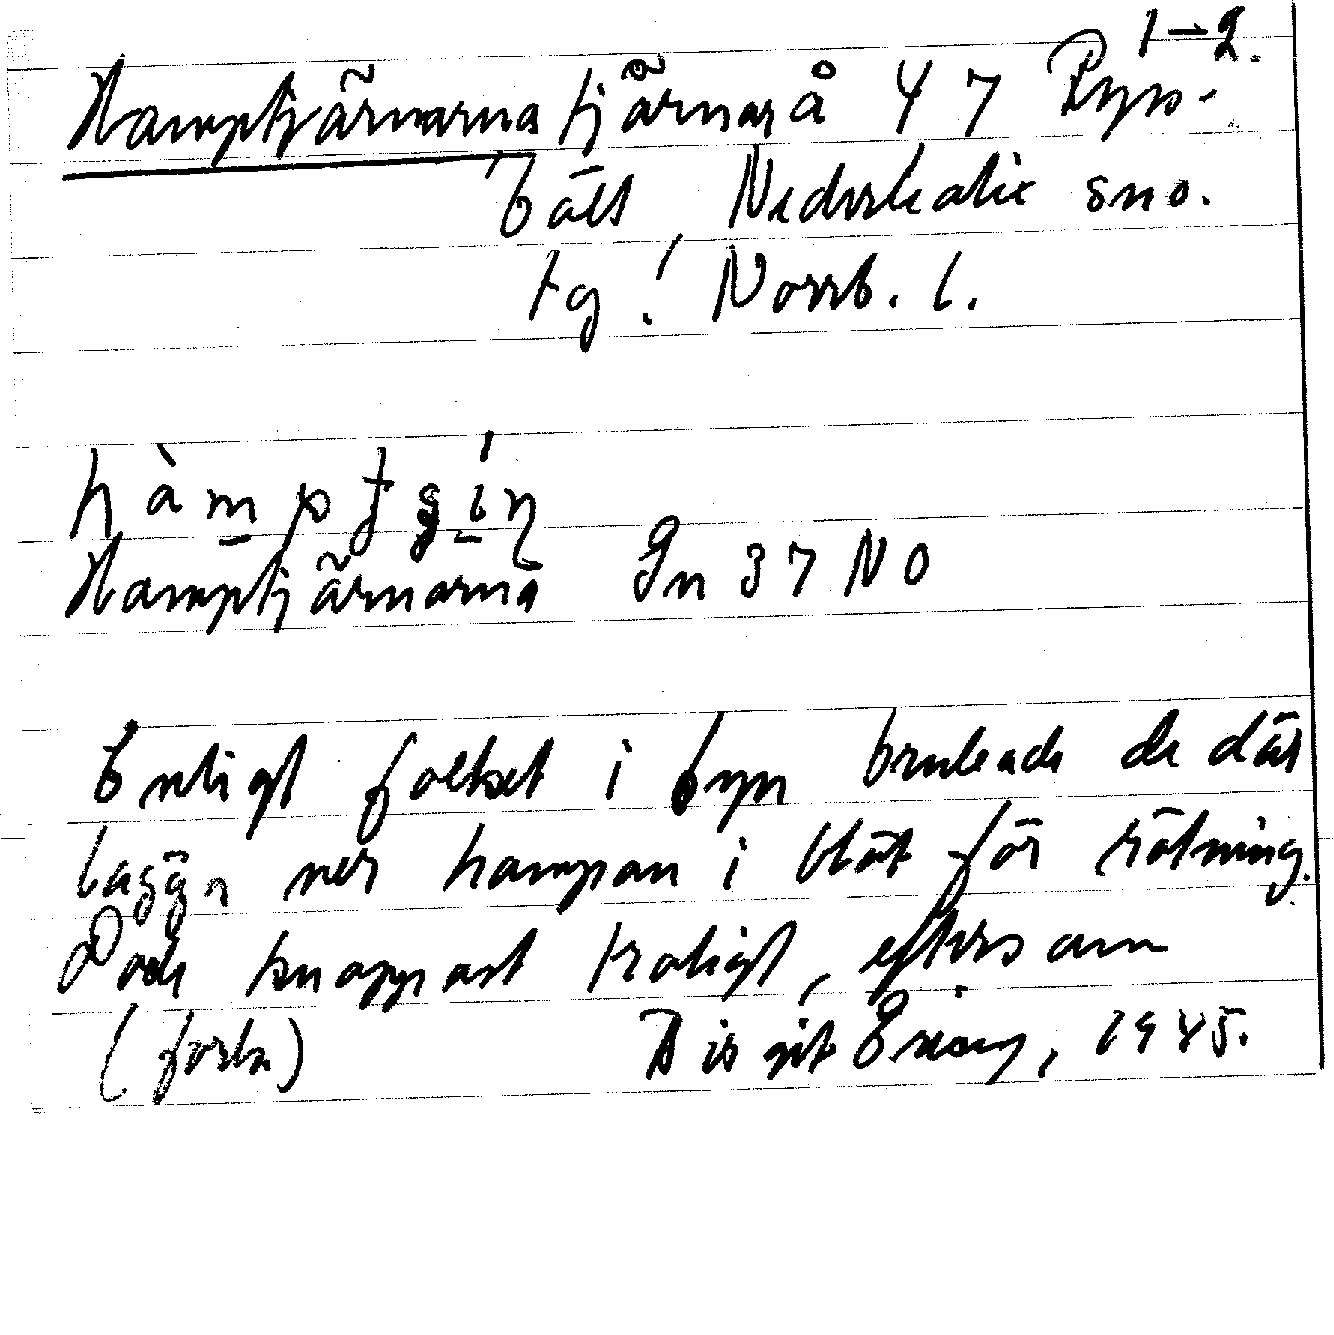 1-2.
Hamptjärnarna tjärnar å Y 7 Ryss-
bält, Nederkalix sno.
tg! Norrb. l.
Hamptjärnarna Gn 37 NO
Enligt folket i byn brukade de där
lägga ner hampan i blöt för rötning.
Dock knappast troligt, eftersom
(forts) Birgit Eriksson, 1945.